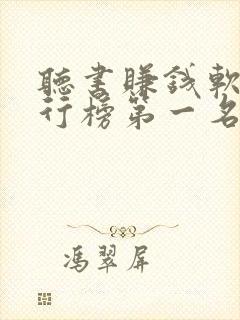 聽書賺錢軟
行榜第一名
馮翠屏